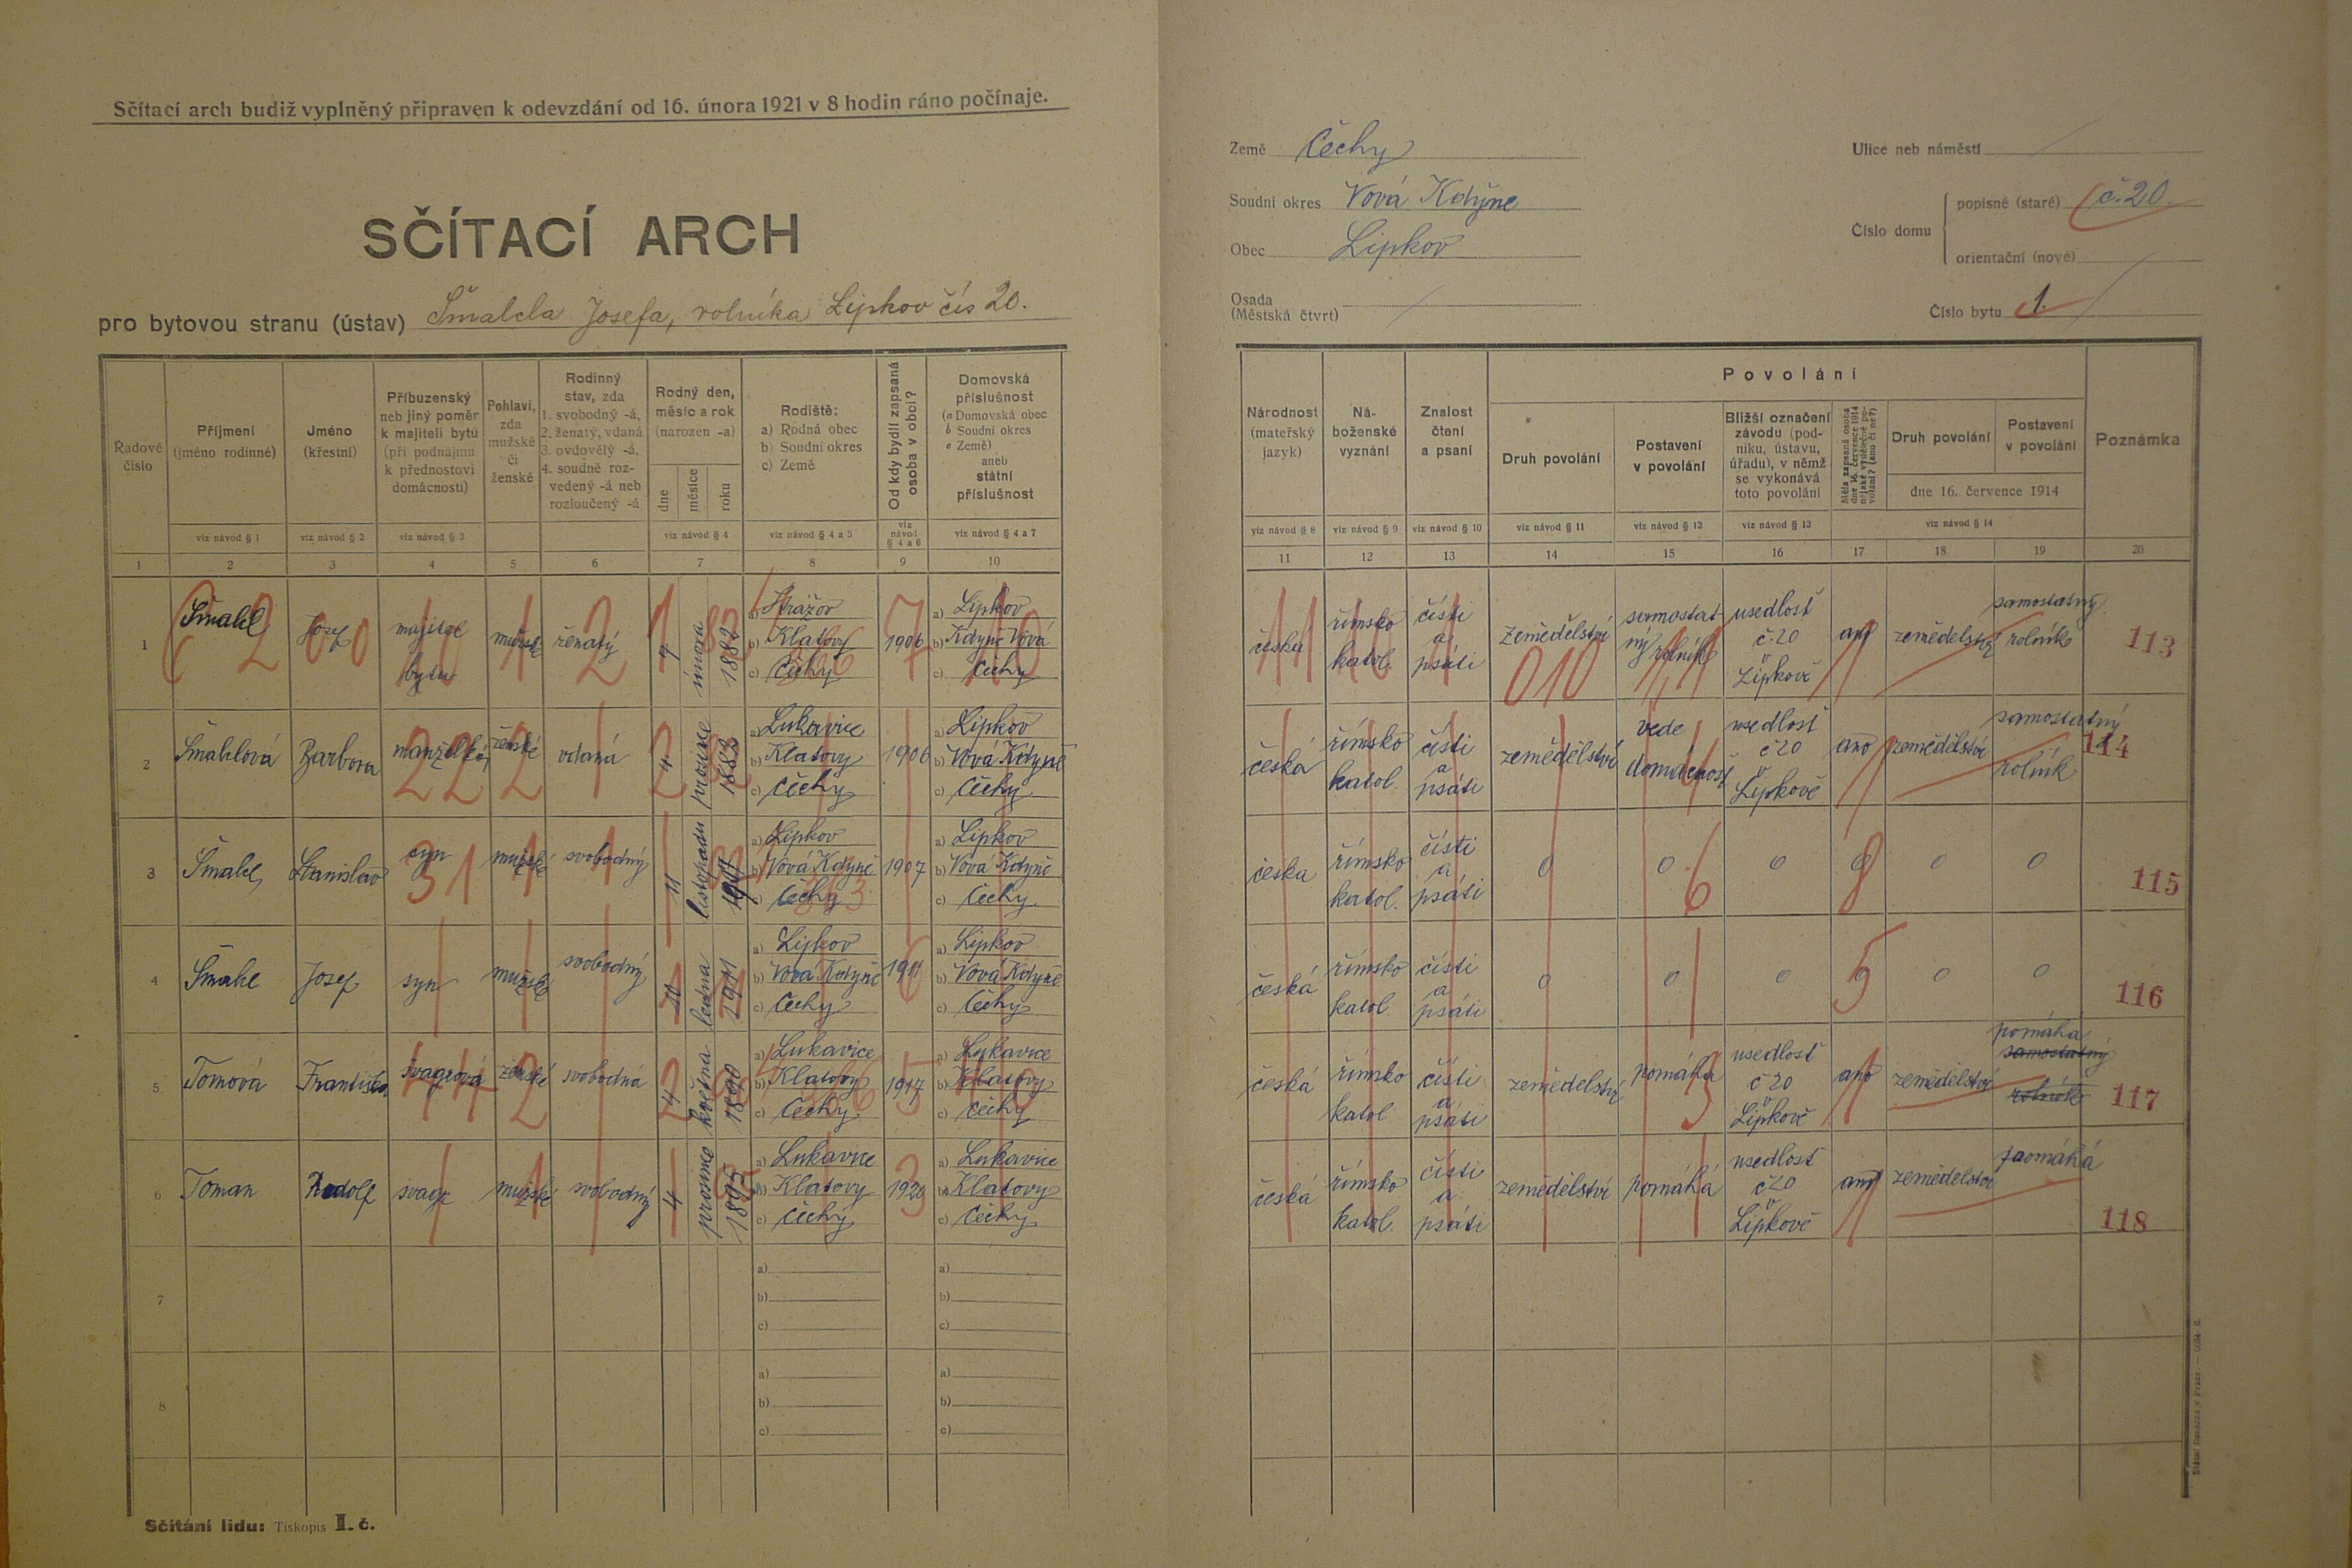 Sčítací arch budiž vyplněný připraven k odevzdání od 16. února 1921 v 8 hodin ráno počínaje.
SČÍTACÍ ARCH
pro bytovou stranu (ústav) Josefa, rolníka Lipkov čís 20.
Země Čechy
Soudní okres Nová Kdýne
Obec Lipkov
Osada
(Městská čtvrt)
Ulice neb náměstí
Číslo domu
popisné (staré) č. 20.
orientační (nové)
Číslo bytu 1.
Řadové číslo
Příjmení
(jméno rodinné)
Jméno
(křestní)
Příbuzenský
neb jiný poměr
k majiteli bytu
(při podnájmu
k přednostovi
domácnosti)
Pohlaví,
zda
mužské
či
ženské
Rodinný
stav, zda
1. svobodný -á,
2. ženatý, vdaná
3. ovdovělý -á,
4. soudně roz-
vedený -á neb
rozloučený -á
Rodný den,
měsíc a rok
(narozen -a)
dne
měsíce
roku
Rodiště:
a) Rodná obec
b) Soudní okres
c) Země
Od kdy bydlí zapsaná
osoba v obci?
Domovská
příslušnost
(a Domovská obec
b Soudní okres
c Země)
aneb
státní
příslušnost
viz návod § 1
viz návod § 2
viz návod § 3
viz návod § 4
viz návod § 4 a 5
viz návod § 4 a 6
viz návod § 4 a 7
1 2 3 4 5 6 7 8 9 10
Národnost
(mateřský
jazyk)
Ná-
boženské
vyznání
Znalost
čtení
a psaní
Povolání
Druh povolání
Postavení
v povolání
Bližší označení
závodu (pod-
niku, ústavu,
úřadu), v němž
se vykonává
toto povolání
Měla zapsaná osoba
dne 16. července 1914
nějaké výdělečné po-
volání? (ano či ne?)
Druh povolání
Postavení
v povolání
dne 16. července 1914
Poznámka
viz návod § 8
viz návod § 9
viz návod § 10
viz návod § 11
viz návod § 12
viz návod § 13
viz návod § 14
11 12 13 14 15 16 17 18 19 20
1 Josef majitel bytu mužské ženatý 7 února 1882 a) Strážov b) Klatovy c) Čechy 1906 a) Lipkov b) Kdyně Nová c) Čechy
česká římsko katol. čísti a psáti Zemědělství samostatný rolník usedlost č. 20 v Lipkově ano zemědělství samostatný rolník 113
2 Barbora manželka ženské vdaná 4 prosince 1888 a) Lukavice b) Klatovy c) Čechy 1906 a) Lipkov b) Nová Kdyně c) Čechy
česká římsko katol. čísti a psáti zemědělství vede domácnost usedlost č 20 v Lipkově ano zemědělství samostatný rolník 114
3 Stanislav syn mužské svobodný 11 listopadu 1907 a) Lipkov b) Nová Kdyně c) Čechy 1907 a) Lipkov b) Nová Kdyně c) Čechy
česka římsko katol. čísti a psáti 0 0 0 0 0 0 115
4 Josef syn mužské svobodný 20 ledna 1911 a) Lipkov b) Nová Kdyně c) Čechy 1911 a) Lipkov b) Nová Kdyně c) Čechy
česká římsko katol. čísti a psáti 0 0 0 0 0 0 116
5 Tomová Františka švagrová ženské svobodná 4 května 1890 a) Lukavice b) Klatovy c) Čechy 1917 a) Lukavice b) Klatovy c) Čechy
česká římsko katol čísti a psáti zemědělství pomáhá usedlost č 20 v Lipkově ano zemědělství pomáha samostatný rolník 117
6 Toman Rudolf svagr mužské svobodný 4 prosince 1895 a) Lukavice b) Klatovy c) Čechy 1920 a) Lukavice b) Klatovy c) Čechy
česká římsko katol. čísti a psáti zemědělství pomáhá usedlost č 20 v Lipkově ano zemědělství pomáhá 118
7 a) b) c) a) b) c)
8 a) b) c) a) b) c)
Sčítání lidu: Tiskopis I. č.